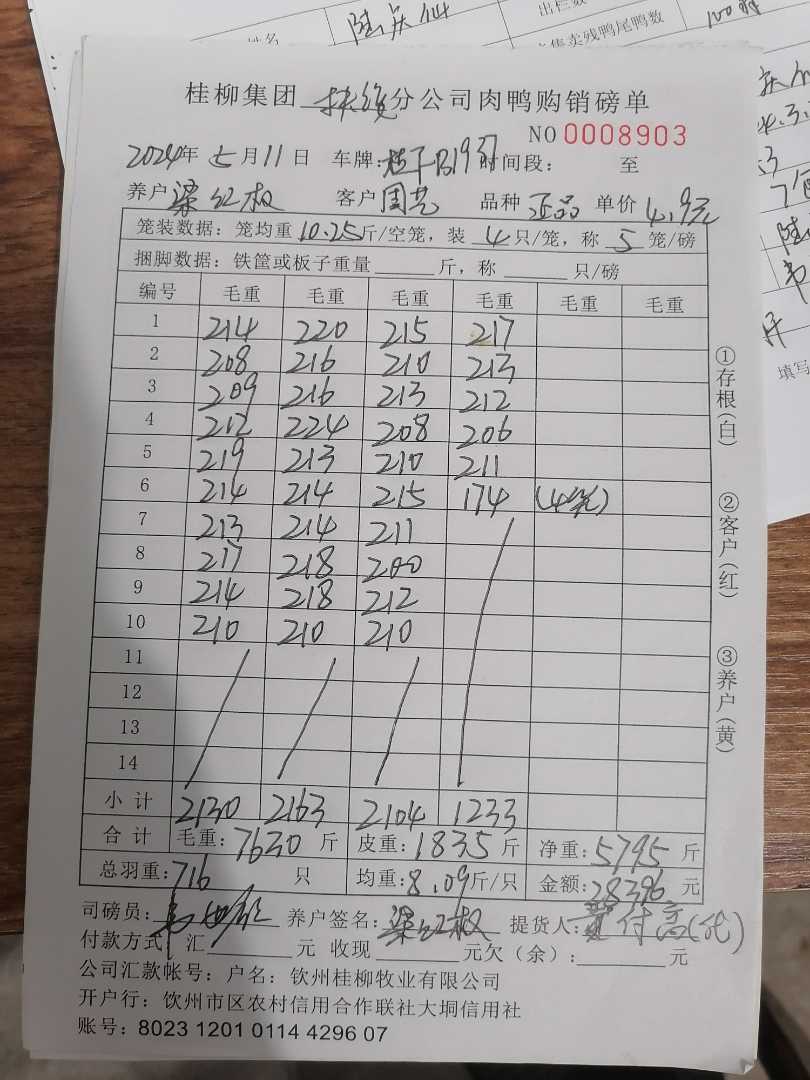 陆庆仙
出栏数
售卖残鸭尾鸭数
100羽
桂柳集团 扶绥分公司肉鸭购销磅单
NO 0008903
2024年 七月11日 车牌: 桂 1937 时间段: 至
养户 梁红权 客户 周艺 品种 正品 单价 4.9元
笼装数据: 笼均重10.25斤/空笼, 装 4 只/笼, 称 5 笼/磅
捆脚数据: 铁筐或板子重量 斤, 称 只/磅
编号 毛重 毛重 毛重 毛重 毛重 毛重
1 214 220 215 217
2 208 216 210 213
3 209 216 213 212
4 212 224 208 206
5 219 213 210 211
6 214 214 215 174 (4笼)
7 213 214 211
8 217 218 200
9 214 218 212
10 210 210 210
11
12
13
14
小计 2130 2163 2104 1233
合计 毛重: 7630 斤 皮重: 1835 斤 净重: 5795 斤
总羽重: 716 只 均重: 8.09斤/只 金额: 28396 元
司磅员: 韦 养户签名: 梁红权 提货人: 付高(代)
付款方式 汇 元 收现 元欠(余): 元
公司汇款帐号: 户名: 钦州桂柳牧业有限公司
开户行: 钦州市区农村信用合作联社大垌信用社
账号: 8023 1201 0114 4296 07
①存根(白)
②客户(红)
③养户(黄)
填写